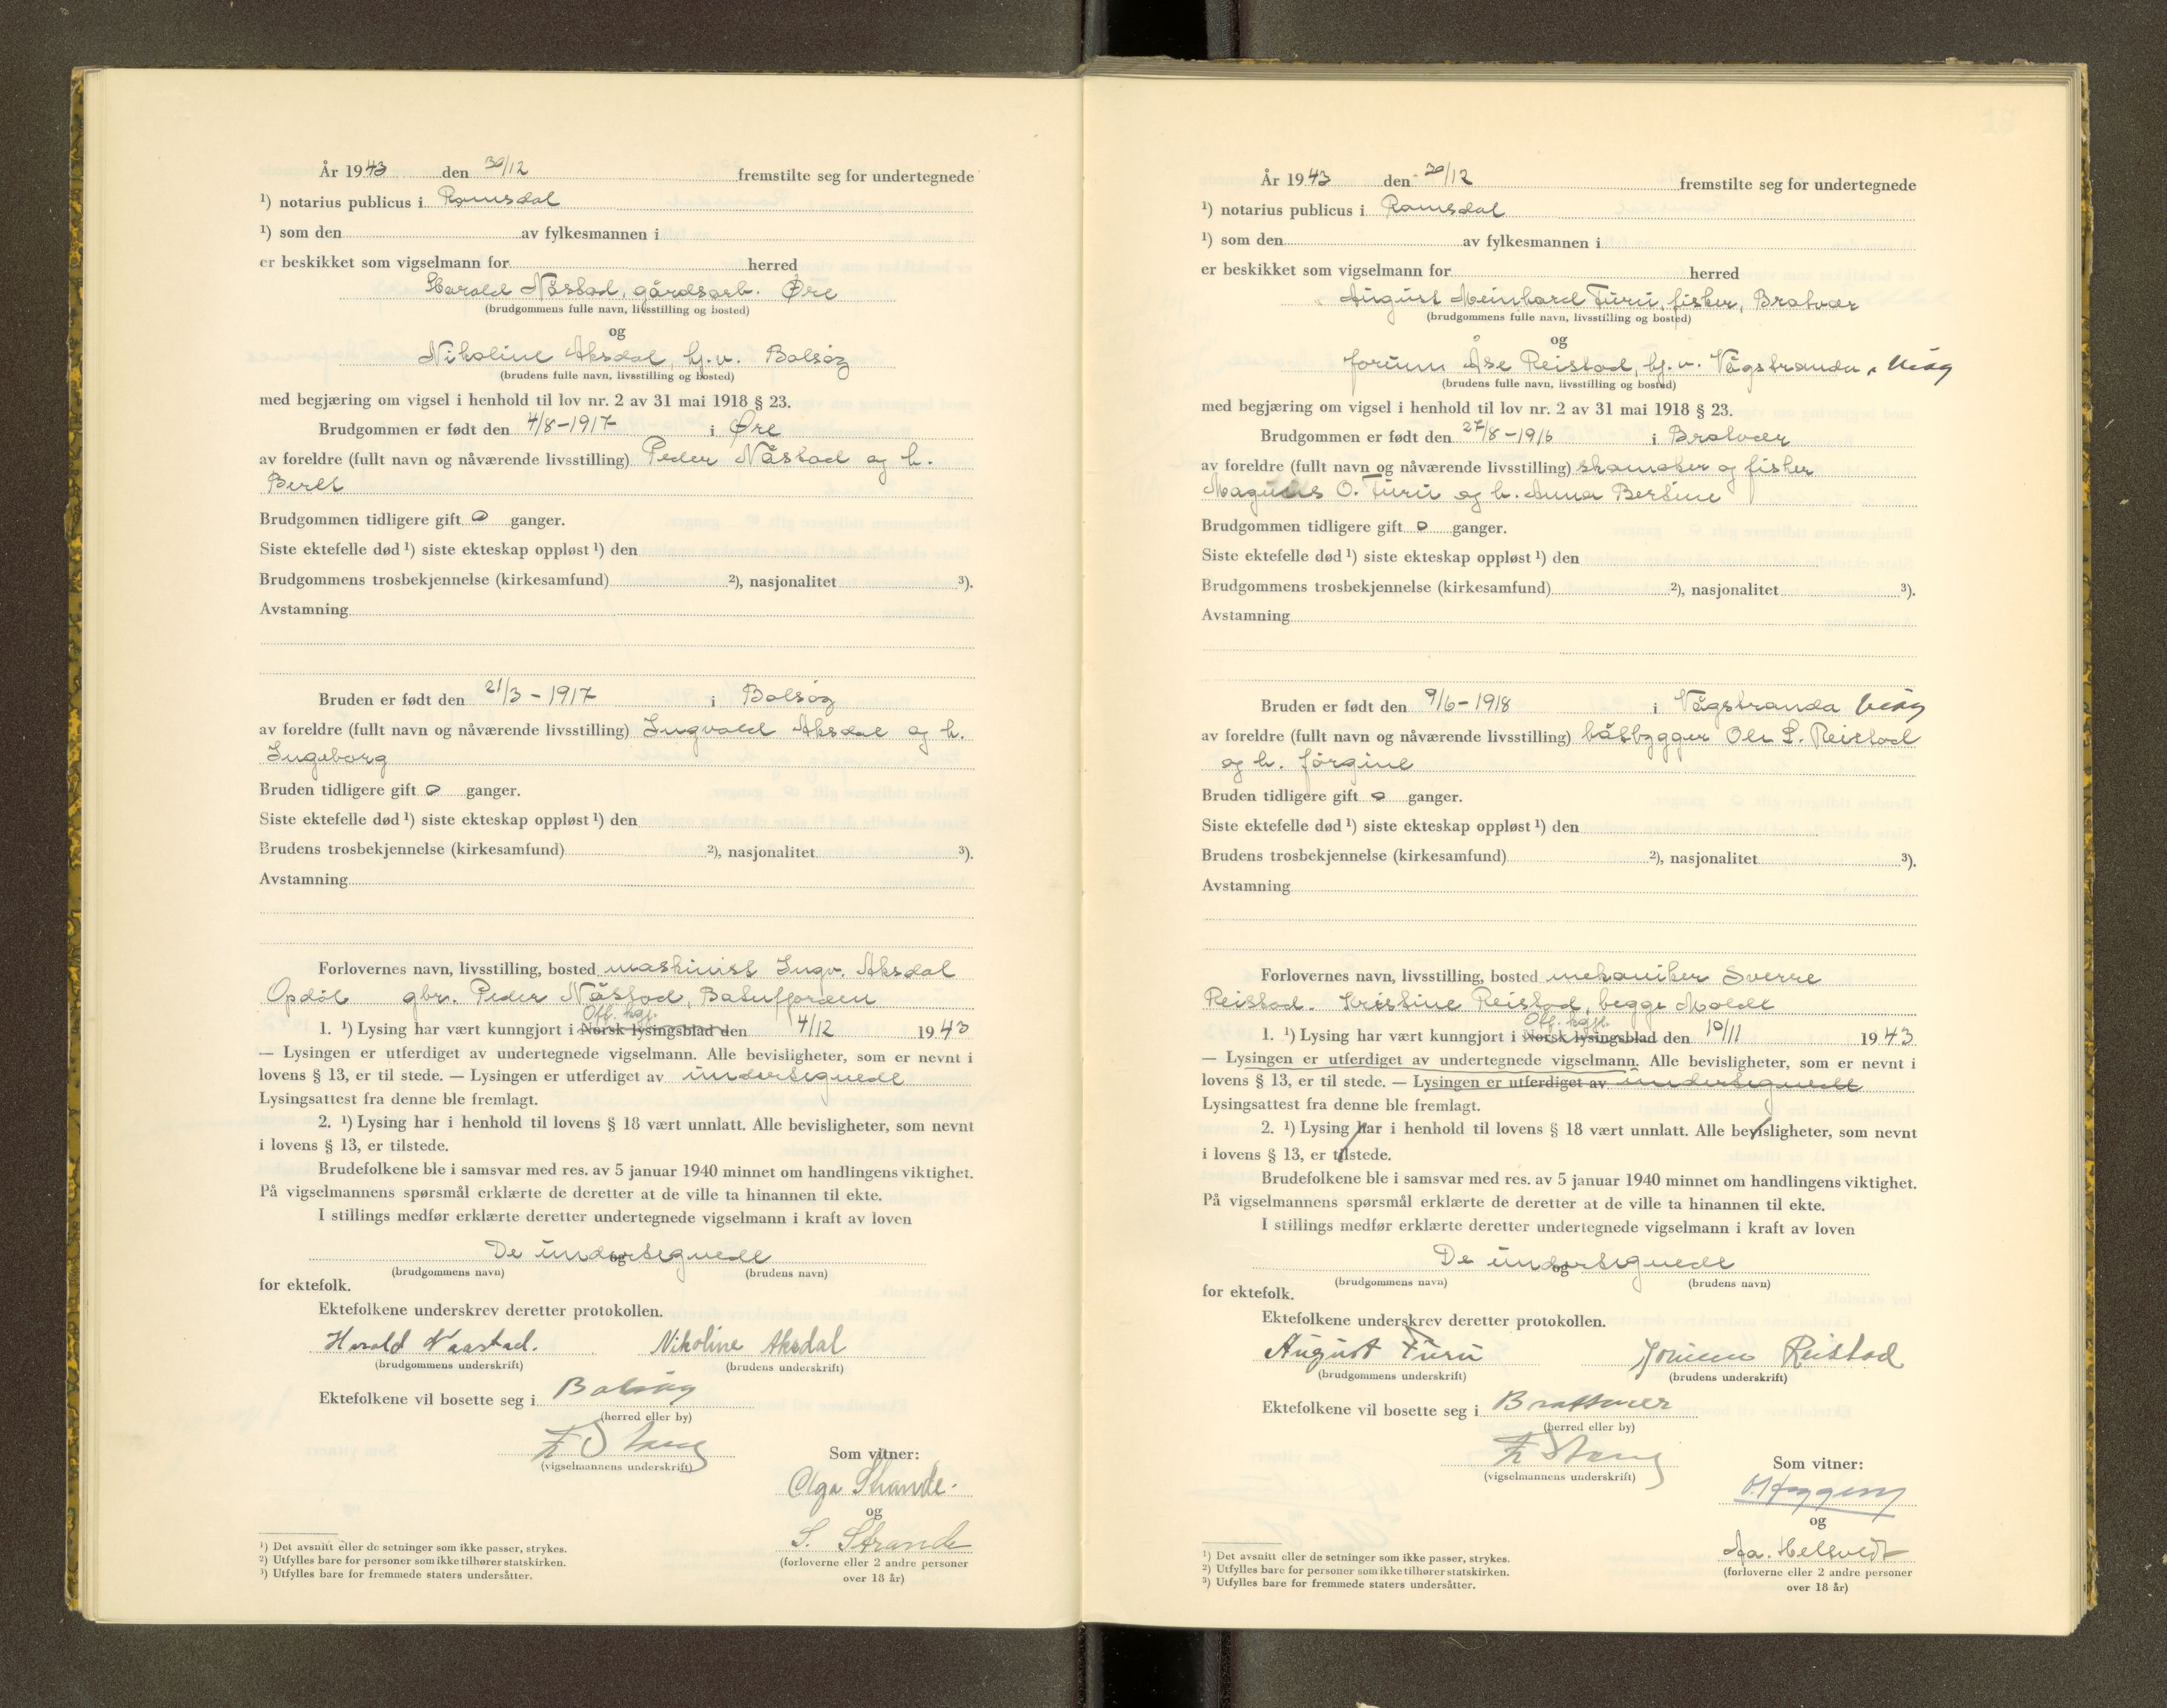 År 1943 den 30/12 fremstilte seg for undertegnede
¹) notarius publicus i Romsdal
¹) som den av fylkesmannen i
er beskikket som vigselmann for herred
Harald Nåstad, gårdsarb. Øre
(brudgommens fulle navn, livsstilling og bosted)
og
Nikoline Aksdal, hj.v. Bolsøy
(brudens fulle navn, livsstilling og bosted)
med begjæring om vigsel i henhold til lov nr. 2 av 31 mai 1918 § 23.
Brudgommen er født den 4/8-1917 i Øre
av foreldre (fullt navn og nåværende livsstilling) Peder Nåstad og h.
Beret
Brudgommen tidligere gift 0 ganger.
Siste ektefelle død ¹) siste ekteskap oppløst ¹) den
Brudgommens trosbekjennelse (kirkesamfund) ²), nasjonalitet ³).
Avstamning
Bruden er født den 21/3-1917 i Bolsøy
av foreldre (fullt navn og nåværende livsstilling) Ingvald Aksdal og h.
Ingeborg
Bruden tidligere gift 0 ganger.
Siste ektefelle død ¹) siste ekteskap oppløst ¹) den
Brudens trosbekjennelse (kirkesamfund) ²), nasjonalitet ³).
Avstamning
Forlovernes navn, livsstilling, bosted maskinist Ingv. Aksdal
Opdøl gbr. Peder Nåstad, Batnfjorden
Off. kgj.
1. ¹) Lysing har vært kunngjort i Norsk lysingsblad den 4/12 1943
— Lysingen er utferdiget av undertegnede vigselmann. Alle bevisligheter, som er nevnt i
lovens § 13, er til stede. — Lysingen er utferdiget av undertegnede
Lysingsattest fra denne ble fremlagt.
2. ¹) Lysing har i henhold til lovens § 18 vært unnlatt. Alle bevisligheter, som nevnt
i lovens § 13, er tilstede.
Brudefolkene ble i samsvar med res. av 5 januar 1940 minnet om handlingens viktighet.
På vigselmannens spørsmål erklærte de deretter at de ville ta hinannen til ekte.
I stillings medfør erklærte deretter undertegnede vigselmann i kraft av loven
De undertegnede
og
(brudgommens navn) (brudens navn)
for ektefolk.
Ektefolkene underskrev deretter protokollen.
Harald Naastad. Nikoline Aksdal
(brudgommens underskrift) (brudens underskrift)
Ektefolkene vil bosette seg i Bolsøy
(herred eller by)
(vigselmannens underskrift)
Som vitner:
Olga Strande.
og
S. Strande
(forloverne eller 2 andre personer
over 18 år)
¹) Det avsnitt eller de setninger som ikke passer, strykes.
²) Utfylles bare for personer som ikke tilhører statskirken.
³) Utfylles bare for fremmede staters undersåtter.
År 1943 den 30/12 fremstilte seg for undertegnede
¹) notarius publicus i Romsdal
¹) som den av fylkesmannen i
er beskikket som vigselmann for herred
August Meinhard Furu, fisker, Bratvær
(brudgommens fulle navn, livsstilling og bosted)
og
Jorunn Åse Reistad, hj.v. Vågstranda, Veøy
(brudens fulle navn, livsstilling og bosted)
med begjæring om vigsel i henhold til lov nr. 2 av 31 mai 1918 § 23.
Brudgommen er født den 27/8-1916 i Bratvær
av foreldre (fullt navn og nåværende livsstilling) skomaker og fisker
Magnus O. Furu og h. Anna Bertine
Brudgommen tidligere gift 0 ganger.
Siste ektefelle død ¹) siste ekteskap oppløst ¹) den
Brudgommens trosbekjennelse (kirkesamfund) ²), nasjonalitet ³).
Avstamning
Bruden er født den 9/6-1918 i Vågstranda Veøy
av foreldre (fullt navn og nåværende livsstilling) båtbygger Ole L. Reistad
og h. Jørgine
Bruden tidligere gift 0 ganger.
Siste ektefelle død ¹) siste ekteskap oppløst ¹) den
Brudens trosbekjennelse (kirkesamfund) ²), nasjonalitet ³).
Avstamning
Forlovernes navn, livsstilling, bosted mekaniker Sverre
Reistad. Kristine Reistad, begge Molde
Off. kgj.
1. ¹) Lysing har vært kunngjort i Norsk lysingsblad den 10/11 1943
— Lysingen er utferdiget av undertegnede vigselmann. Alle bevisligheter, som er nevnt i
lovens § 13, er til stede. — Lysingen er utferdiget av undertegnede
Lysingsattest fra denne ble fremlagt.
2. ¹) Lysing har i henhold til lovens § 18 vært unnlatt. Alle bevisligheter, som nevnt
i lovens § 13, er tilstede.
Brudefolkene ble i samsvar med res. av 5 januar 1940 minnet om handlingens viktighet.
På vigselmannens spørsmål erklærte de deretter at de ville ta hinannen til ekte.
I stillings medfør erklærte deretter undertegnede vigselmann i kraft av loven
De undertegnede
og
(brudgommens navn) (brudens navn)
for ektefolk.
Ektefolkene underskrev deretter protokollen.
August Furu Jorunn Reistad
(brudgommens underskrift) (brudens underskrift)
Ektefolkene vil bosette seg i Brattvær
(herred eller by)
(vigselmannens underskrift)
Som vitner:
og
Aa. Helsvedt
(forloverne eller 2 andre personer
over 18 år)
¹) Det avsnitt eller de setninger som ikke passer, strykes.
²) Utfylles bare for personer som ikke tilhører statskirken.
³) Utfylles bare for fremmede staters undersåtter.